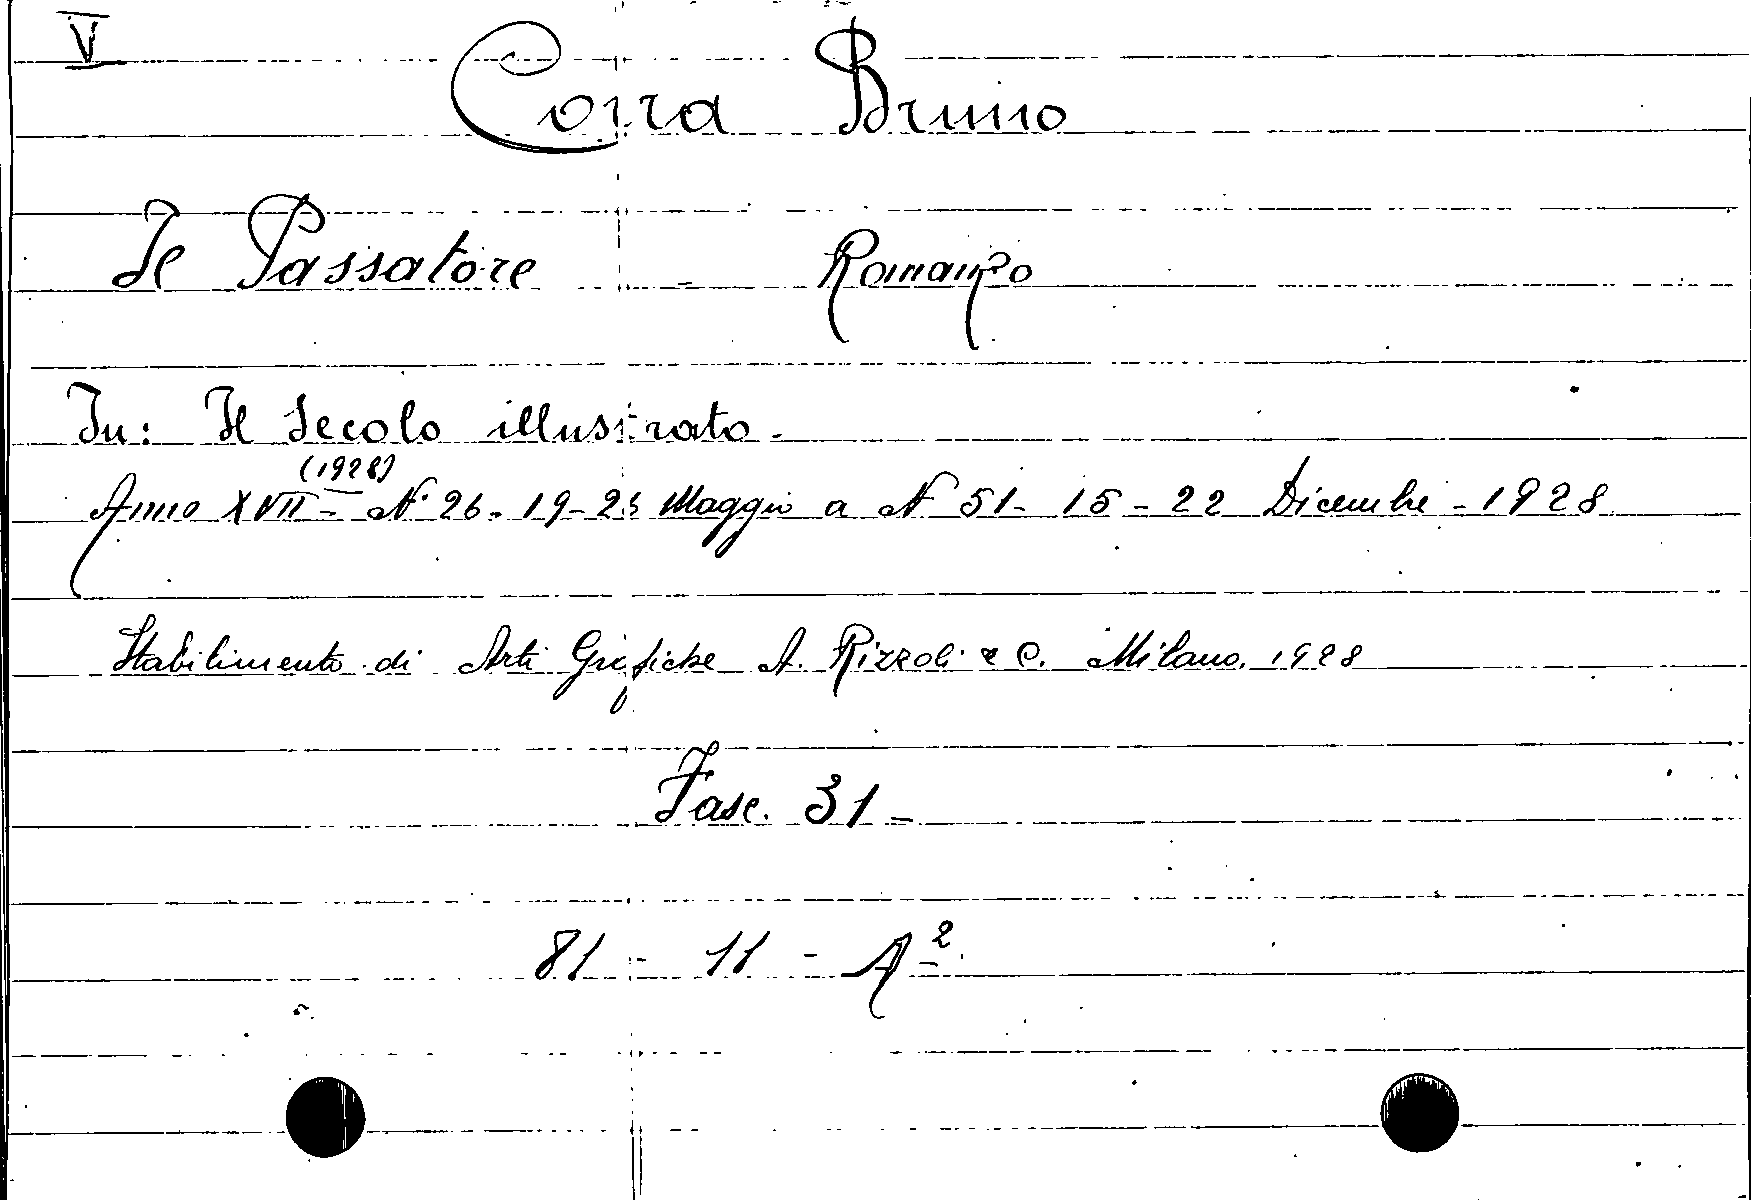 V
Corra Bruno
Il Passatore - Romanzo
In: Il Secolo illustrato -
(1928)
Anno XVII - N° 26 - 19-25 Maggio a N 51 - 15 - 22 Dicembre - 1928
Stabilimento di Arti Grafiche A. Rizzoli e C. Milano. 1928
Fasc. 31 -
81 - 11 - A2